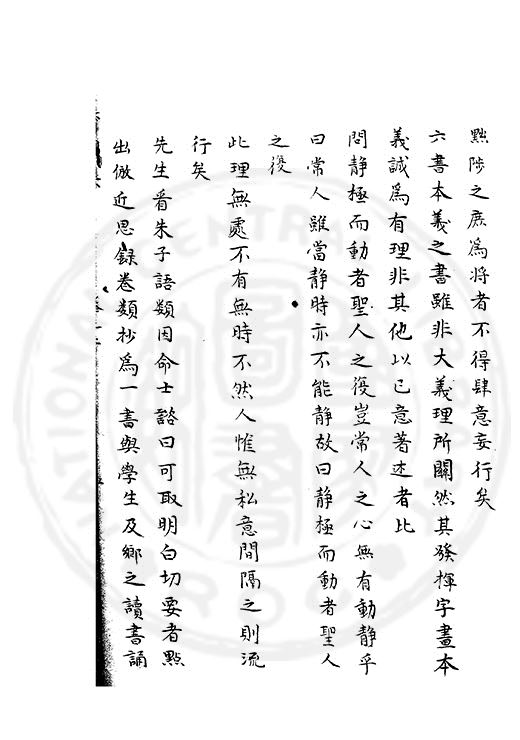 黜陟之庶為將者不得肆意妄行矣
六書本義之書雖非大義理所關然其發揮字畫本
義誠為有理非其他以己意著述者比
問静極而動者聖人之復豈常人之心無有動静乎
曰常人雖當静時亦不能静故曰静極而動者聖人
之復
此理無處不有無時不然人惟無私意間隔之則流
行矣
先生看朱子語類因命士諮曰可取明白切要者點
出倣近思録卷類抄為一書與學生及鄉之讀書誦